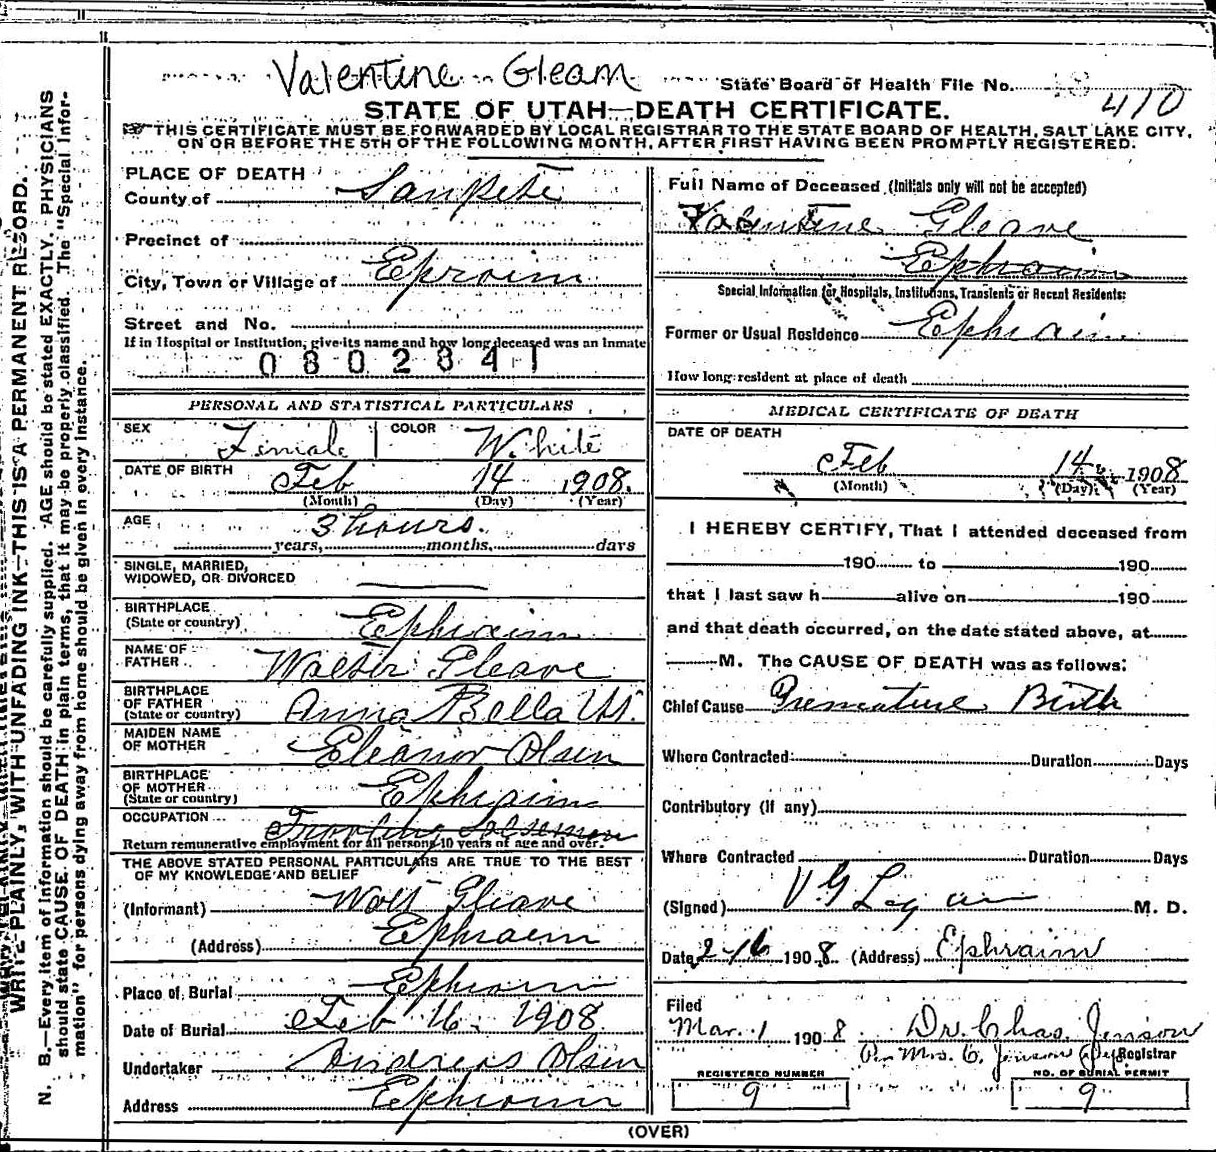 Valentine Gleam
State Board of Health File No. 18
410
STATE OF UTAH—DEATH CERTIFICATE.
THIS CERTIFICATE MUST BE FORWARDED BY LOCAL REGISTRAR TO THE STATE BOARD OF HEALTH, SALT LAKE CITY,
ON OR BEFORE THE 5TH OF THE FOLLOWING MONTH, AFTER FIRST HAVING BEEN PROMPTLY REGISTERED.
WRITE PLAINLY, WITH UNFADING INK—THIS IS A PERMANENT RECORD.
N. B.—Every item of information should be carefully supplied. AGE should be stated EXACTLY. PHYSICIANS
should state CAUSE OF DEATH in plain terms, that it may be properly classified. The "Special Infor-
mation" for persons dying away from home should be given in every instance.
PLACE OF DEATH
County of Sanpete
Precinct of
City, Town or Village of Eproim
Street and No.
If in Hospital or Institution, give its name and how long deceased was an inmate
0802841
PERSONAL AND STATISTICAL PARTICULARS
SEX Female COLOR White
DATE OF BIRTH Feb 14 1908.
(Month) (Day) (Year)
AGE 3 hours.
years, months, days
SINGLE, MARRIED,
WIDOWED, OR DIVORCED
BIRTHPLACE
(State or country) Ephraim
NAME OF
FATHER Walter Gleave
BIRTHPLACE
OF FATHER
(State or country) Anna Bella Ut.
MAIDEN NAME
OF MOTHER Eleanor Olsen
BIRTHPLACE
OF MOTHER
(State or country) Ephraim
OCCUPATION
Return remunerative employment for all persons 10 years of age and over.
THE ABOVE STATED PERSONAL PARTICULARS ARE TRUE TO THE BEST
OF MY KNOWLEDGE AND BELIEF
(Informant) Walt Gleave
(Address) Ephraim
Place of Burial Ephraim
Date of Burial Feb 16. 1908
Undertaker Andreas Olsen
Address Ephraim
Full Name of Deceased (Initials only will not be accepted)
Valentine Gleave
Ephraim
Special Information for Hospitals, Institutions, Transients or Recent Residents:
Former or Usual Residence Ephraim
How long resident at place of death
MEDICAL CERTIFICATE OF DEATH
DATE OF DEATH
Feb 14 1908
(Month) (Day) (Year)
I HEREBY CERTIFY, That I attended deceased from
190 to 190
that I last saw h alive on 190
and that death occurred, on the date stated above, at
M. The CAUSE OF DEATH was as follows:
Chief Cause Premature Birth
Where Contracted Duration Days
Contributory (if any)
Where Contracted Duration Days
(Signed) M. D.
Date 2-16 1908. (Address) Ephraim
Filed
Mar. 1 1908 Dr. Chas. Jenson
Per Mrs. C. Jenson Registrar
REGISTERED NUMBER
9
NO. OF BURIAL PERMIT
9
(OVER)